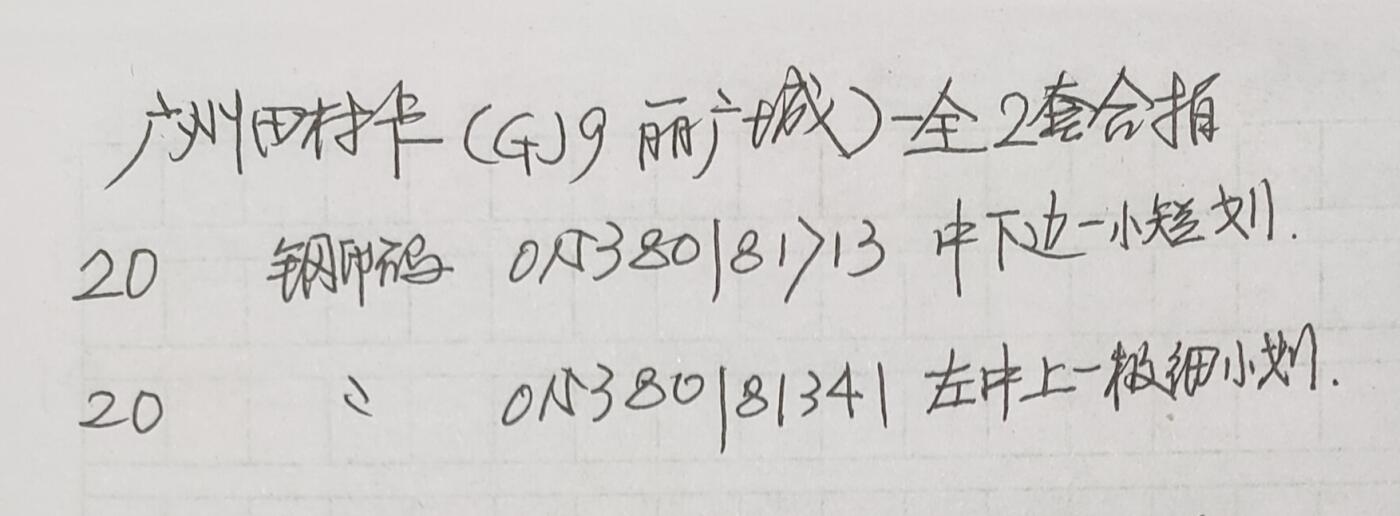 广州田村卡(GJ9 丽广城)-全2套合拍
20 钢印码 015380181713 中下边一小短划.
20 〃 015380181341 左中上一极细小划.